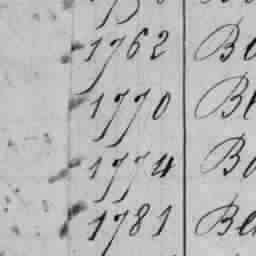 1762 Bo
1770 Bl
1774 Bo
1781 Ble